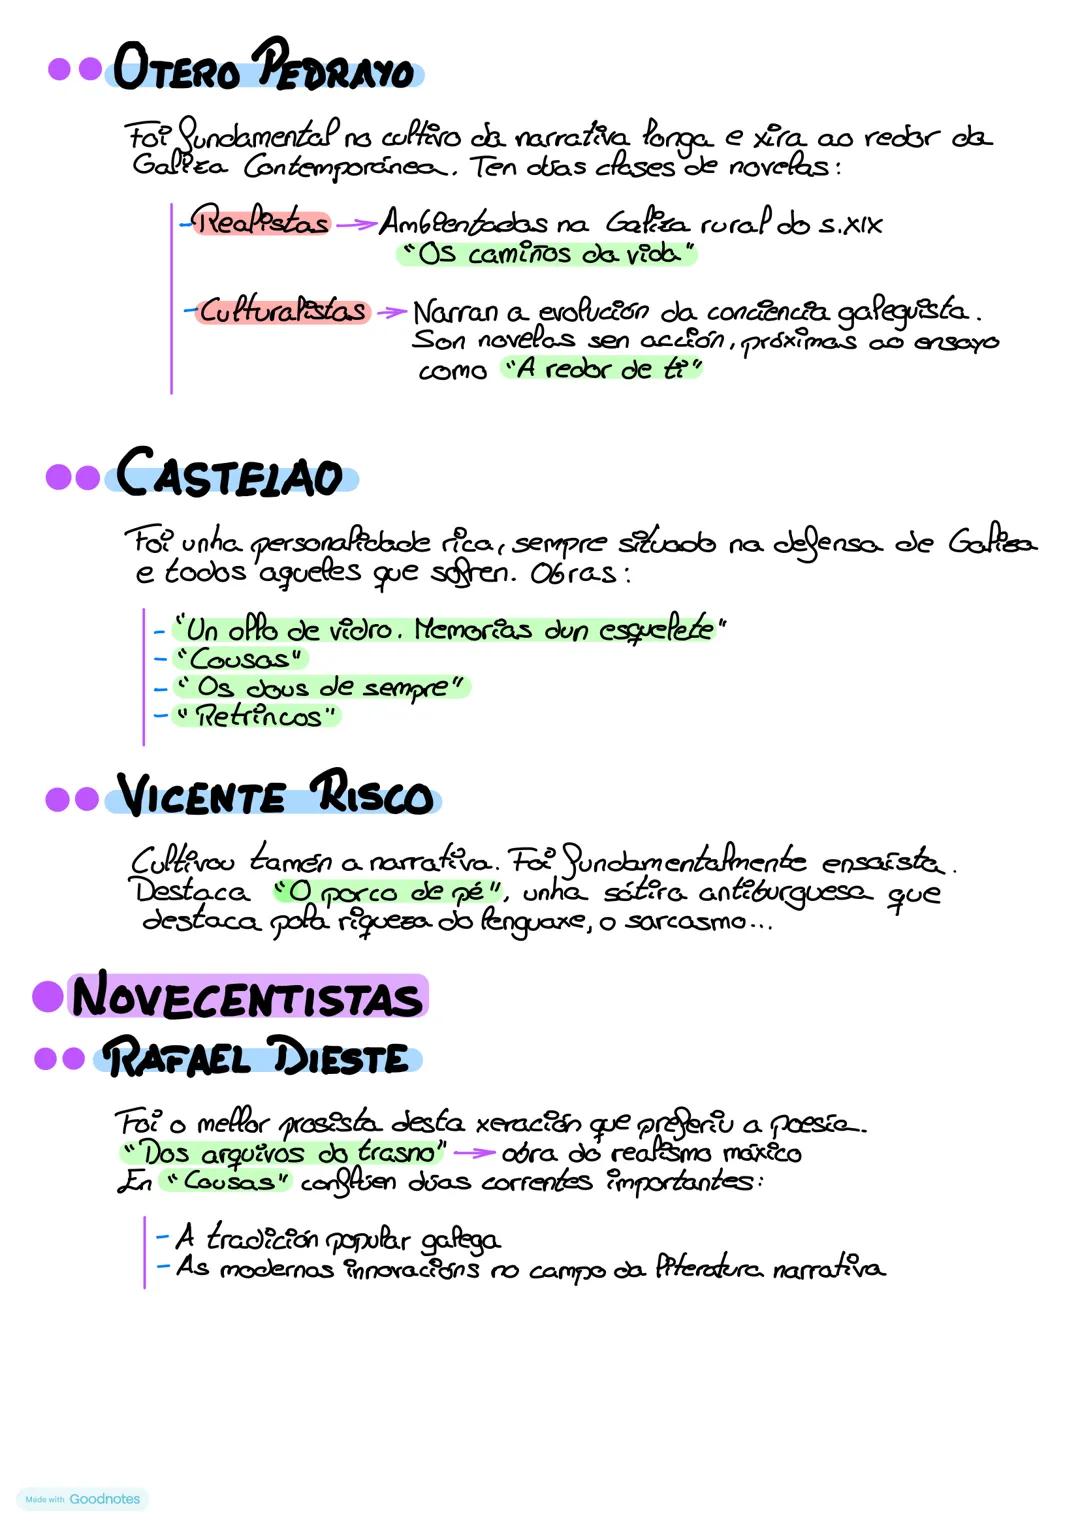 OTERO PEDRAYO
Foi fundamental no cultivo da narrativa longa e xira ao redor da
Galiza Contemporánea. Ten dúas clases de novelas:
- Realistas → Ambientadas na Galiza rural do s.XIX
"Os camiños da vida"
- Culturalistas → Narran a evolución da conciencia galeguista.
Son novelas sen acción, próximas ao ensayo
como "A redor de ti"
CASTELAO
Foi unha personalidade rica, sempre situado na defensa de Galiza
e todos aqueles que sofren. Obras:
- "Un ollo de vidro. Memorias dun esquelete"
- "Cousas"
- "Os dous de sempre"
- "Retrincos"
VICENTE RISCO
Cultivou tamén a narrativa. Foi fundamentalmente ensaísta.
Destaca "O porco de pé", unha sátira antiburguesa que
destaca pola riqueza do lenguaxe, o sarcasmo...
NOVECENTISTAS
RAFAEL DIESTE
Foi o mellor prosista desta xeración que preferiu a poesía.
"Dos arquivos do trasno" → obra do realismo máxico
En "Cousas" conflúen dúas correntes importantes:
- A tradición popular galega
- As modernas innovacións no campo da literatura narrativa
Made with Goodnotes